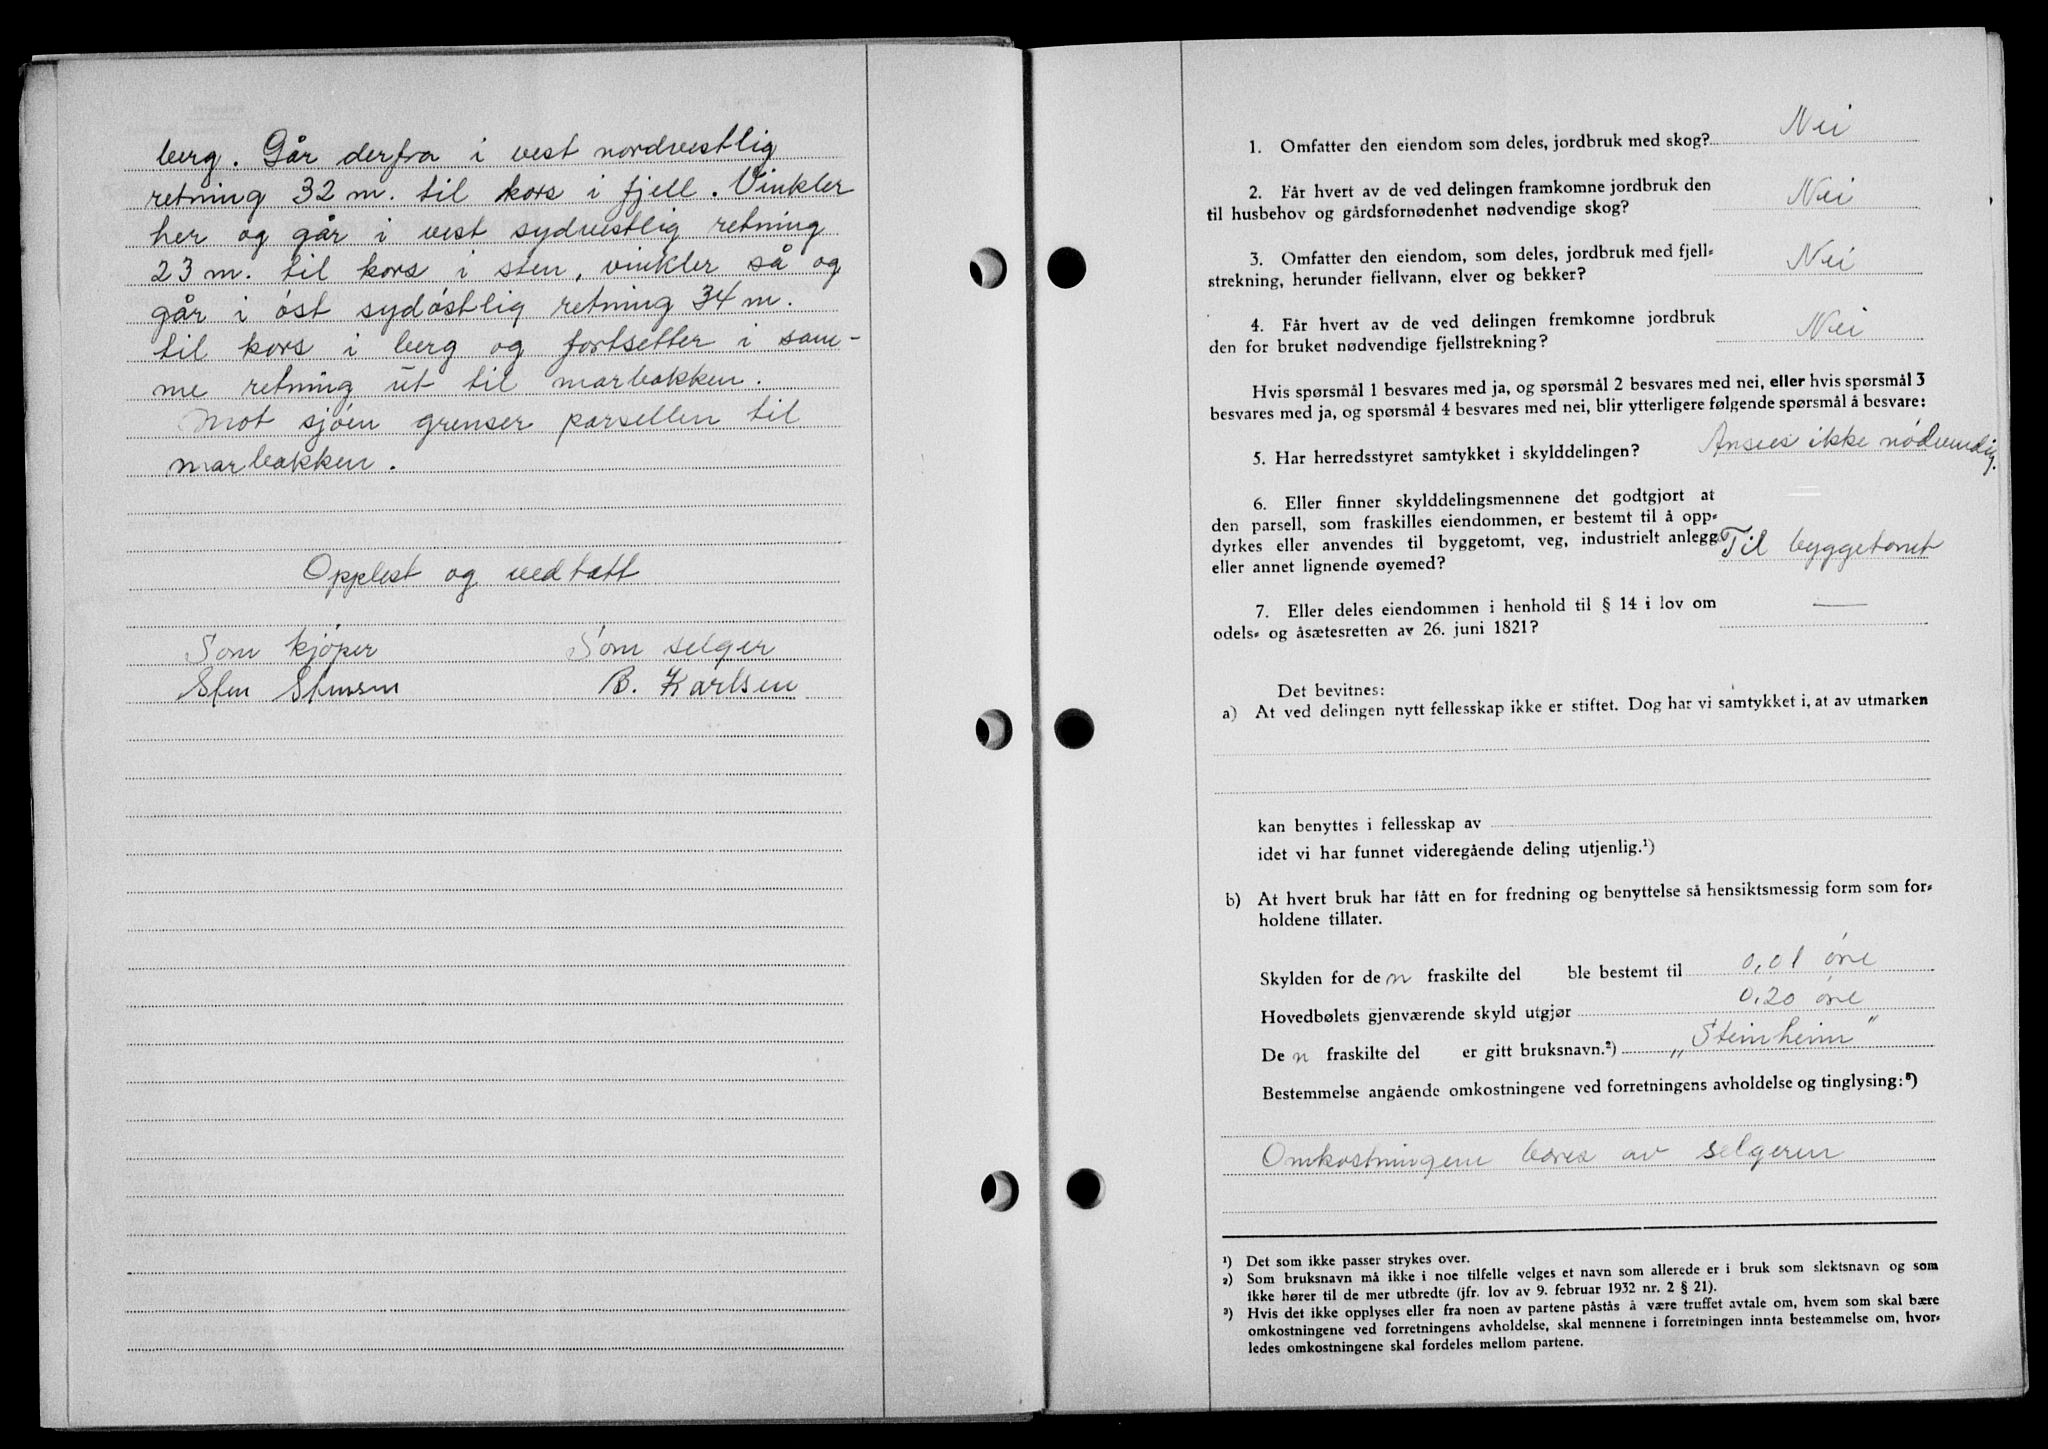 berg. Går derfra i vest nordvestlig
retning 32 m. til kors i fjell. Vinkler
her og går i vest sydvestlig retning
23 m. til kors i sten, vinkler så og
går i øst sydøstlig retning 34 m.
til kors i berg og fortsetter i sam-
me retning ut til marbakken.
Mot sjøen grenser parsellen til
marbakken.
Opplest og vedtatt
Som kjøper Som selger
Sten Stensen B. Karlsen
1. Omfatter den eiendom som deles, jordbruk med skog? Nei
2. Får hvert av de ved delingen framkomne jordbruk den
til husbehov og gårdsfornødenhet nødvendige skog? Nei
3. Omfatter den eiendom, som deles, jordbruk med fjell-
strekning, herunder fiellvann, elver og bekker? Nei
4. Får hvert av de ved delingen fremkomne jordbruk
den for bruket nødvendige fjellstrekning? Nei
Hvis spørsmål 1 besvares med ja, og spørsmål 2 besvares med nei, eller hvis spørsmål 3
besvares med ja, og spørsmål 4 besvares med nei, blir ytterligere følgende spørsmål å besvare:
5. Har herredsstyret samtykket i skylddelingen? Ansees ikke nødvendig.
6. Eller finner skylddelingsmennene det godtgjort at
den parsell, som fraskilles eiendommen, er bestemt til å opp-
dyrkes eller anvendes til byggetomt, veg, industrielt anlegg
eller annet lignende øyemed? Til byggetomt
7. Eller deles eiendommen i henhold til § 14 i lov om
odels- og åsætesretten av 26. juni 1821? —
Det bevitnes:
a) At ved delingen nytt fellesskap ikke er stiftet. Dog har vi samtykket i, at av utmarken
kan benyttes i fellesskap av
idet vi har funnet videregående deling utjenlig.¹)
b) At hvert bruk har fått en for fredning og benyttelse så hensiktsmessig form som for-
holdene tillater.
Skylden for den fraskilte del ble bestemt til 0,01 øre
Hovedbølets gjenværende skyld utgjør 0,20 øre
Den fraskilte del er gitt bruksnavn.²) „Steinheim"
Bestemmelse angående omkostningene ved forretningens avholdelse og tinglysing:³)
Omkostningene bæres av selgeren
¹) Det som ikke passer strykes over.
²) Som bruksnavn må ikke i noe tilfelle velges et navn som allerede er i bruk som slektsnavn og som
ikke hører til de mer utbredte (jfr. lov av 9. februar 1932 nr. 2 § 21).
³) Hvis det ikke opplyses eller fra noen av partene påstås å være truffet avtale om, hvem som skal bære
omkostningene ved forretningens avholdelse, skal mennene i forretningen innta bestemmelse om, hvor-
ledes omkostningene skal fordeles mellom partene.